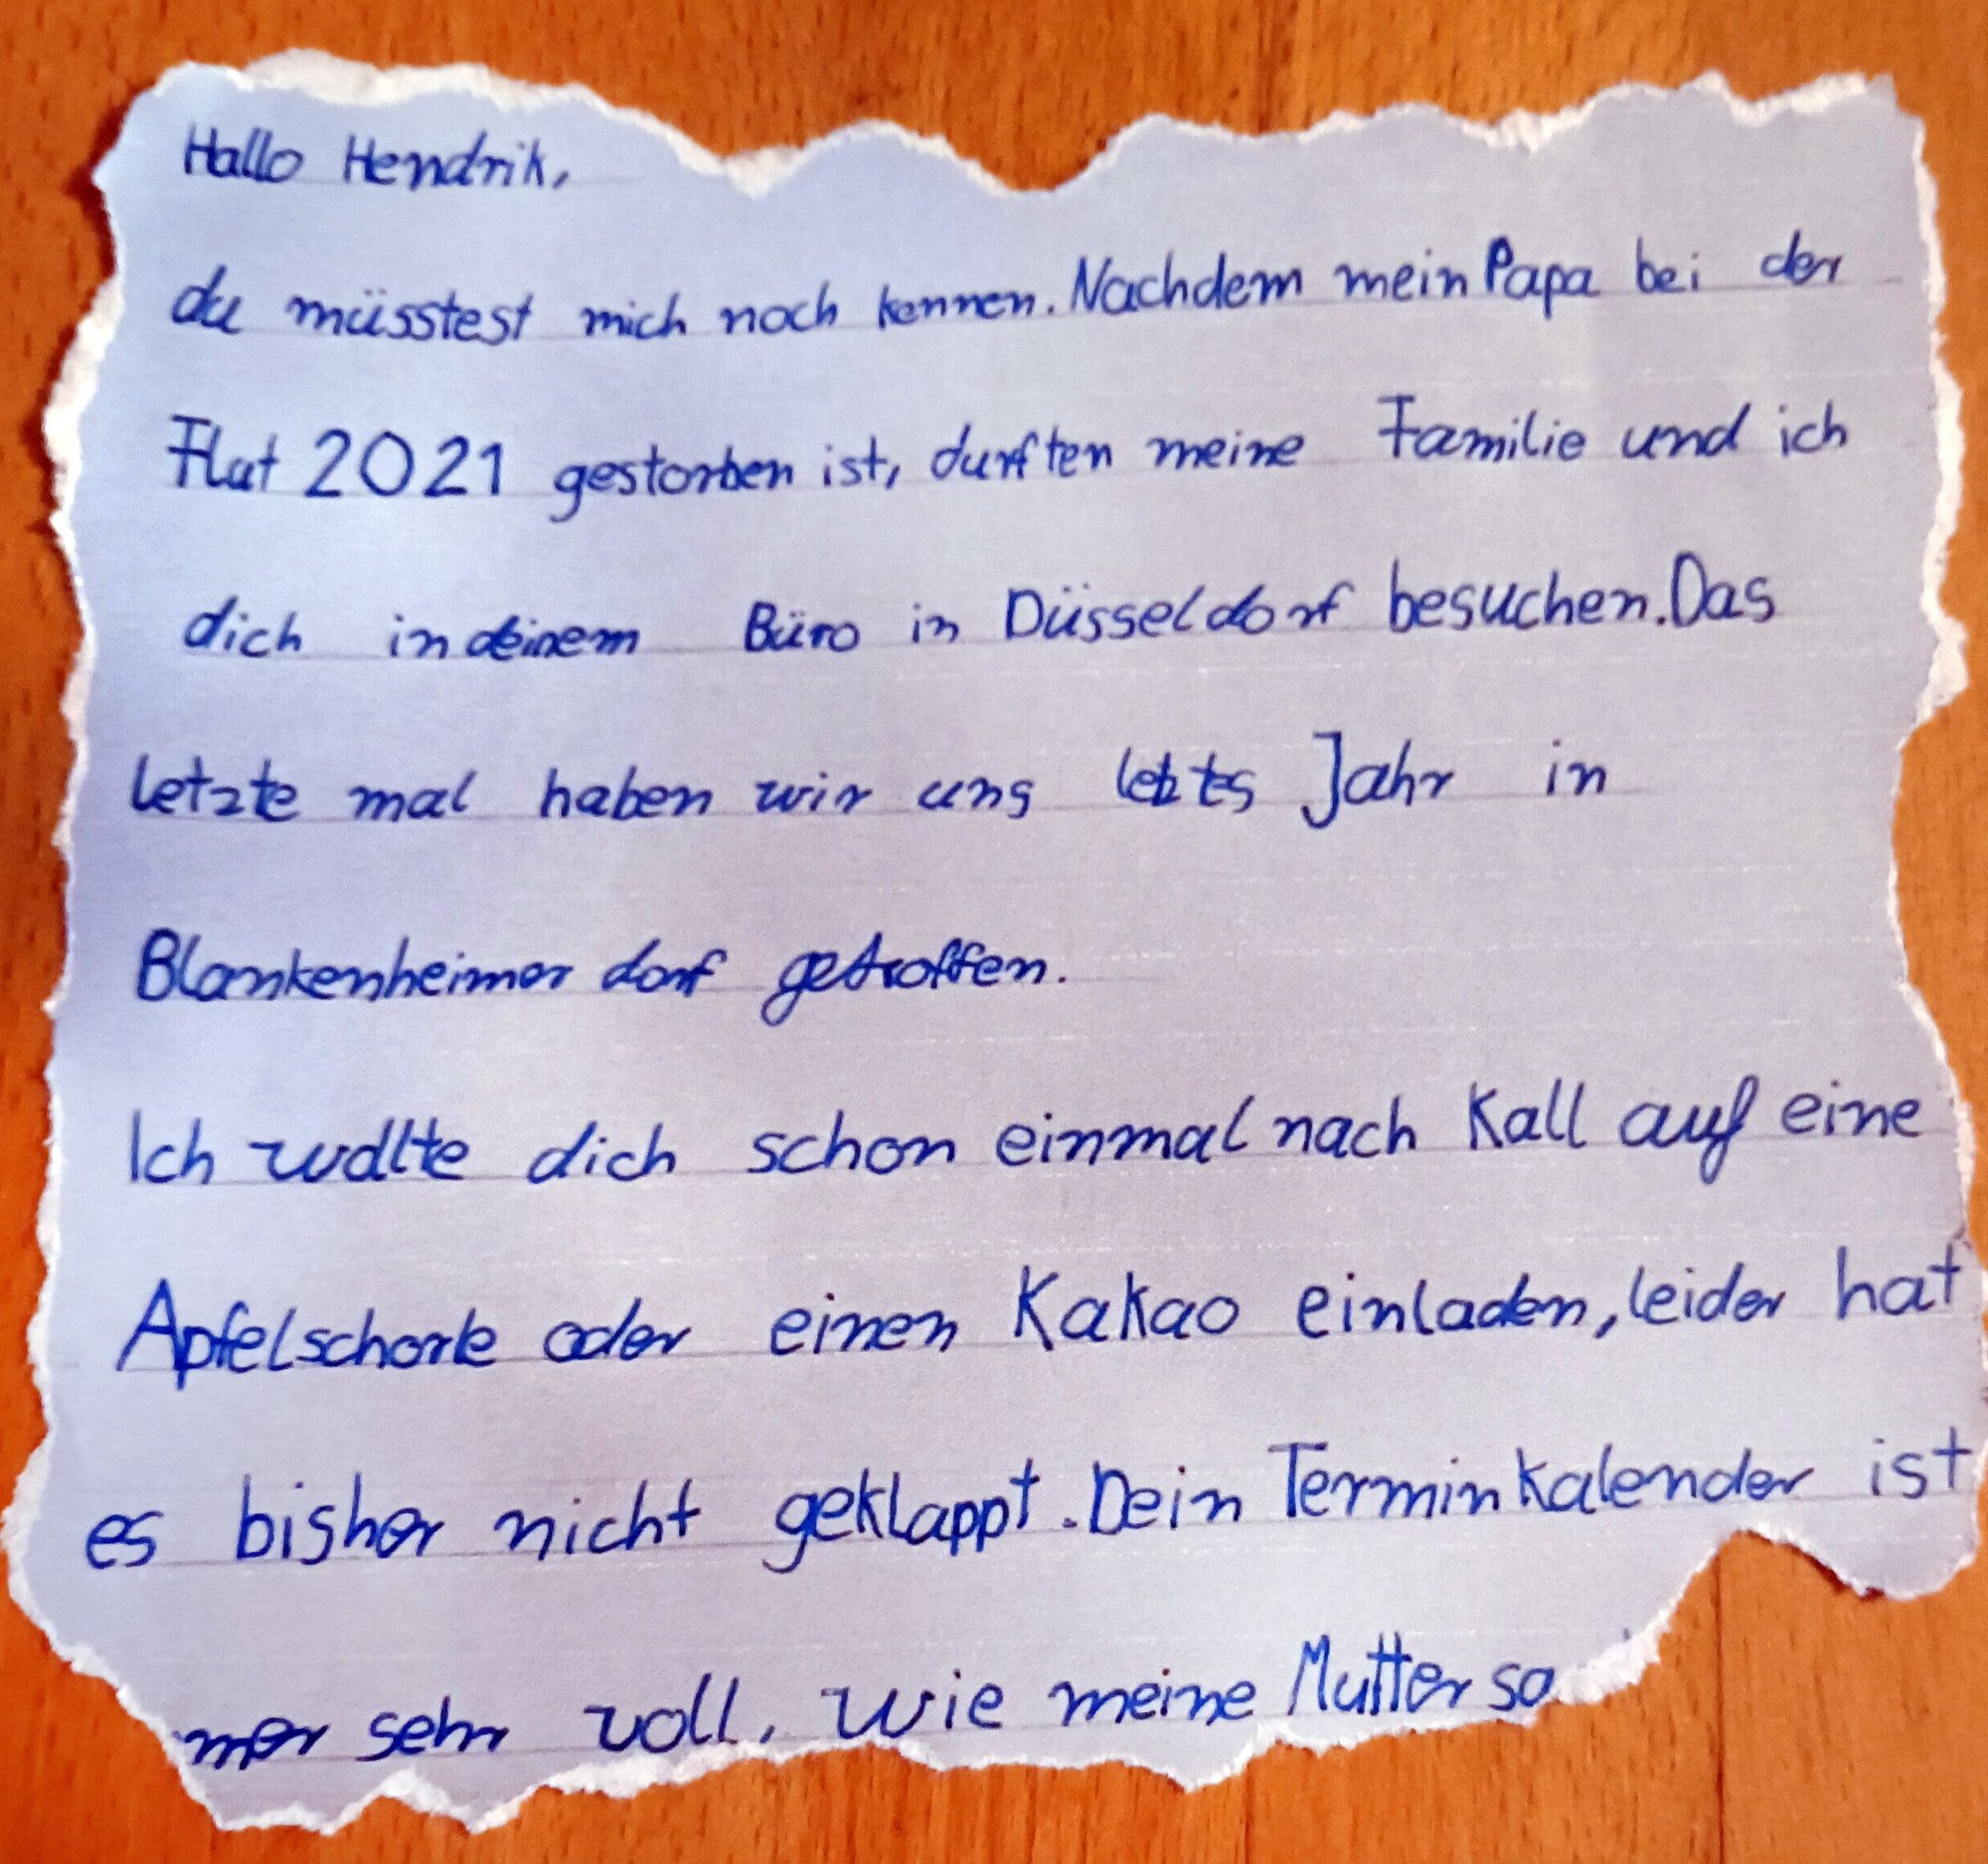 Hallo Hendrik,
du müsstest mich noch kennen. Nachdem mein Papa bei der
Flut 2021 gestorben ist, durften meine Familie und ich
dich in deinem Büro in Düsseldorf besuchen. Das
letzte mal haben wir uns letzts Jahr in
Blankenheimer dorf getroffen.
Ich wollte dich schon einmal nach Kall auf eine
Apfelschorle oder einen Kakao einladen, leider hat
es bisher nicht geklappt. Dein Terminkalender ist
mer sehr voll, wie meine Mutter sa